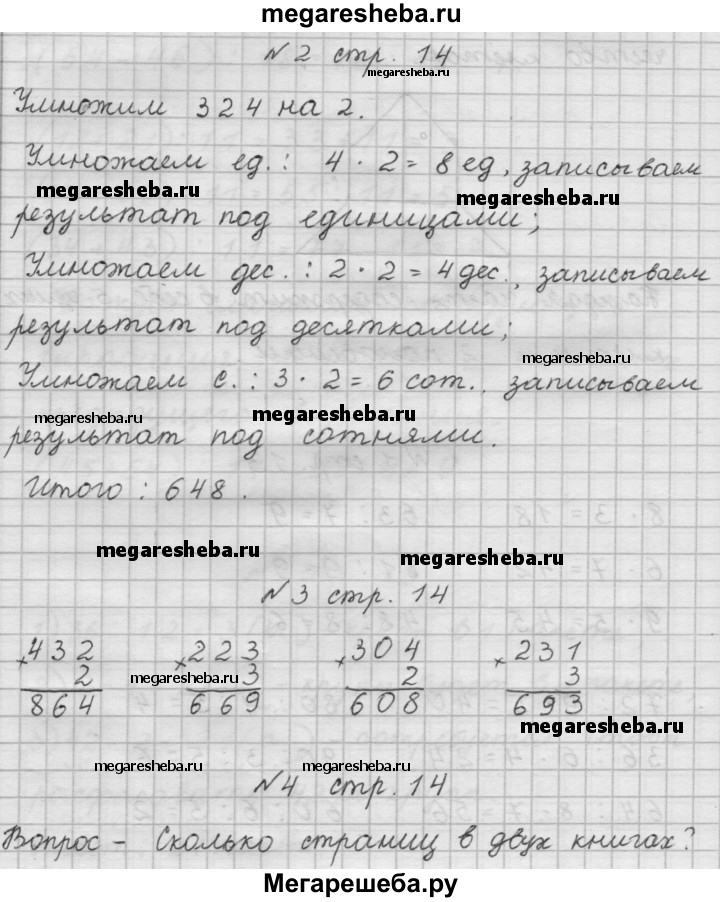 megaresheba.ru
№2 стр. 14
megaresheba.ru
Умножим 324 на 2.
Умножаем ед.: 4 · 2 = 8 ед, записываем
megaresheba.ru megaresheba.ru
результат под единицами;
Умножаем дес.: 2 · 2 = 4 дес., записываем
результат под десятками;
megaresheba.ru
Умножаем с.: 3 · 2 = 6 сот. записываем
megaresheba.ru megaresheba.ru
результат под сотнями.
Итого : 648.
megaresheba.ru megaresheba.ru
№3 стр. 14
×432 ×223 ×304 ×231
2 3 2 3
megaresheba.ru
864 669 608 693
megaresheba.ru
megaresheba.ru megaresheba.ru
№4 стр. 14
Вопрос – Сколько страниц в двух книгах?
Мегарешеба.ру